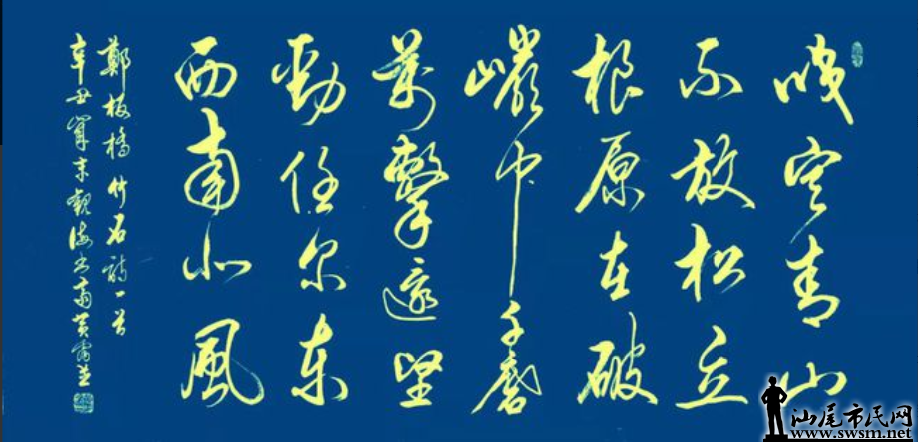 咬定青山
不放松立
根原在破
巖中千磨
萬擊還堅
勁任尔东
西南北風
鄭板橋竹石詩一首
辛丑夏末觀海书齋黄
汕尾市民网
www.swsm.net